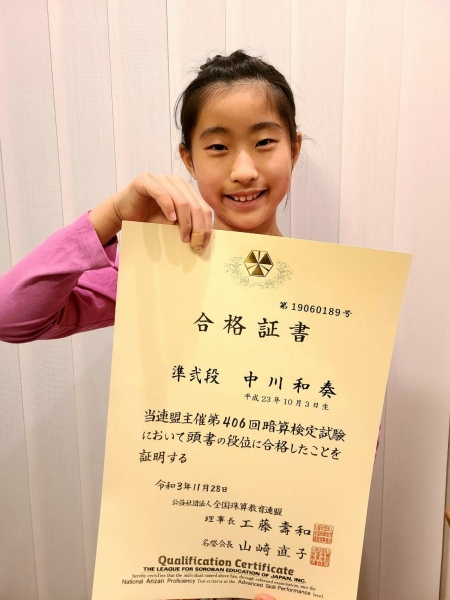 第19060189号
合格証書
準弐段 中川和奏
平成23年10月3日生
当連盟主催第406回暗算検定試験
において頭書の段位に合格したことを
証明する
令和3年11月28日
公益社団法人全国珠算教育連盟
理事長 工藤壽和
名誉会長 山崎直子
Qualification Certificate
THE LEAGUE FOR SOROBAN EDUCATION OF JAPAN, INC.
hereby certifies that the individual named above has, through referenced examination, met the
National Anzan Proficiency Test criteria at the Advanced Skill Performance level.